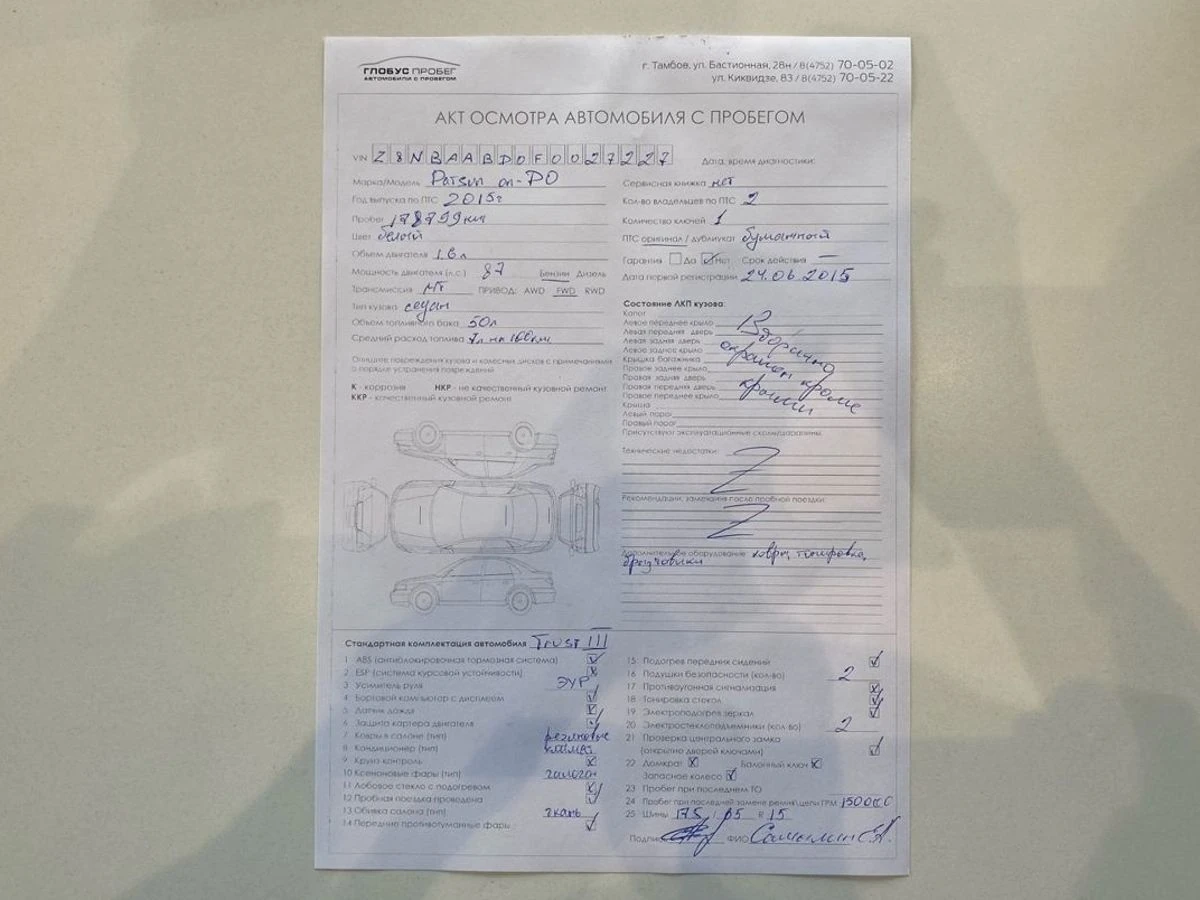 ГЛОБУС ПРОБЕГ
АВТОМОБИЛИ С ПРОБЕГОМ
г. Тамбов, ул. Бастионная, 28н / 8(4752) 70-05-02
ул. Киквидзе, 83 / 8(4752) 70-05-22
АКТ ОСМОТРА АВТОМОБИЛЯ С ПРОБЕГОМ
VIN Z8NBAABD0F0027227
Дата, время диагностики:
Марка/Модель Datsun on-DO
Год выпуска по ПТС 2015г
Пробег 178799км
Цвет белый
Объем двигателя 1.6л
Мощность двигателя (л.с.) 87 Бензин Дизель
Трансмиссия МТ ПРИВОД: AWD FWD RWD
Тип кузова седан
Объем топливного бака 50л
Средний расход топлива 7л на 100км
Опишите повреждения кузова и колесных дисков с примечаниями
о порядке устранения повреждений
К - коррозия НКР - не качественный кузовной ремонт
ККР - качественный кузовной ремонт
Сервисная книжка нет
Кол-во владельцев по ПТС 2
Количество ключей 1
ПТС оригинал / дубликат бумажный
Гарантия Да Нет Срок действия —
Дата первой регистрации 24.06.2015
Состояние ЛКП кузова:
Капот
Левое переднее крыло
Левая передняя дверь
Левая задняя дверь
Левое заднее крыло
Крышка багажника
Правое заднее крыло
Правая задняя дверь
Правая передняя дверь
Правое переднее крыло
Крыша
Левый порог
Правый порог
Вторично
окрашен кроме
крыши
Присутствуют эксплуатационные сколы/царапины
Технические недостатки: Z
Рекомендации, замечания после пробной поездки: Z
Дополнительное оборудование: ковры, тонировка,
брызговики
Стандартная комплектация автомобиля Trust III
1 ABS (антиблокировочная тормозная система)
2 ESP (система курсовой устойчивости)
3 Усилитель руля ЭУР
4 Бортовой компьютер с дисплеем
5 Датчик дождя
6 Защита картера двигателя
7 Ковры в салоне (тип) резиновые
8 Кондиционер (тип) климат
9 Круиз-контроль
10 Ксеноновые фары (тип) галоген
11 Лобовое стекло с подогревом
12 Пробная поездка проведена
13 Обивка салона (тип) ткань
14 Передние противотуманные фары
15 Подогрев передних сидений
16 Подушки безопасности (кол-во) 2
17 Противоугонная сигнализация
18 Тонировка стекол
19 Электроподогрев зеркал
20 Электростеклоподъемники (кол-во) 2
21 Проверка центрального замка
(открытие дверей ключами)
22 Домкрат Балонный ключ
Запасное колесо
23 Пробег при последнем ТО
24 Пробег при последней замене ремня/цепи ГРМ 150000
25 Шины 175 / 65 R 15
Подпись ФИО